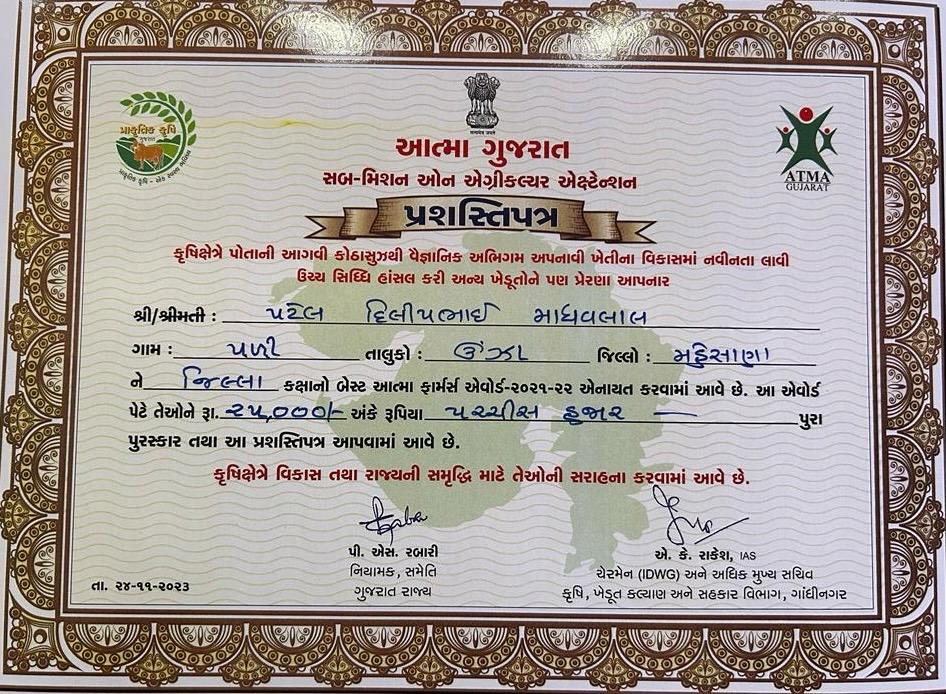 પ્રાકૃતિક કૃષિ
ગુજરાત
પ્રાકૃતિક કૃષિ - એક સ્વસ્થ ભવિષ્ય
सत्यमेव जयते
ATMA
GUJARAT
આત્મા ગુજરાત
સબ-મિશન ઓન એગ્રીકલ્ચર એક્ષ્ટેન્શન
પ્રશસ્તિપત્ર
કૃષિક્ષેત્રે પોતાની આગવી કોઠાસુઝથી વૈજ્ઞાનિક અભિગમ અપનાવી ખેતીના વિકાસમાં નવીનતા લાવી
ઉચ્ચ સિધ્ધિ હાંસલ કરી અન્ય ખેડૂતોને પણ પ્રેરણા આપનાર
શ્રી/શ્રીમતી : પટેલ દિલીપભાઈ માધવલાલ
ગામ : પળી તાલુકો : ઊંઝા જિલ્લો : મહેસાણા
ને જિલ્લા કક્ષાનો બેસ્ટ આત્મા ફાર્મર્સ એવોર્ડ-૨૦૨૧-૨૨ એનાયત કરવામાં આવે છે. આ એવોર્ડ
પેટે તેઓને રૂા. ૨૫,૦૦૦/- અંકે રૂપિયા પચ્ચીસ હજાર — પુરા
પુરસ્કાર તથા આ પ્રશસ્તિપત્ર આપવામાં આવે છે.
કૃષિક્ષેત્રે વિકાસ તથા રાજ્યની સમૃદ્ધિ માટે તેઓની સરાહના કરવામાં આવે છે.
પી. એસ. રબારી
નિયામક, સમેતિ
ગુજરાત રાજ્ય
એ. કે. રાકેશ, IAS
ચેરમેન (IDWG) અને અધિક મુખ્ય સચિવ
કૃષિ, ખેડૂત કલ્યાણ અને સહકાર વિભાગ, ગાંધીનગર
તા. ૨૪-૧૧-૨૦૨૩